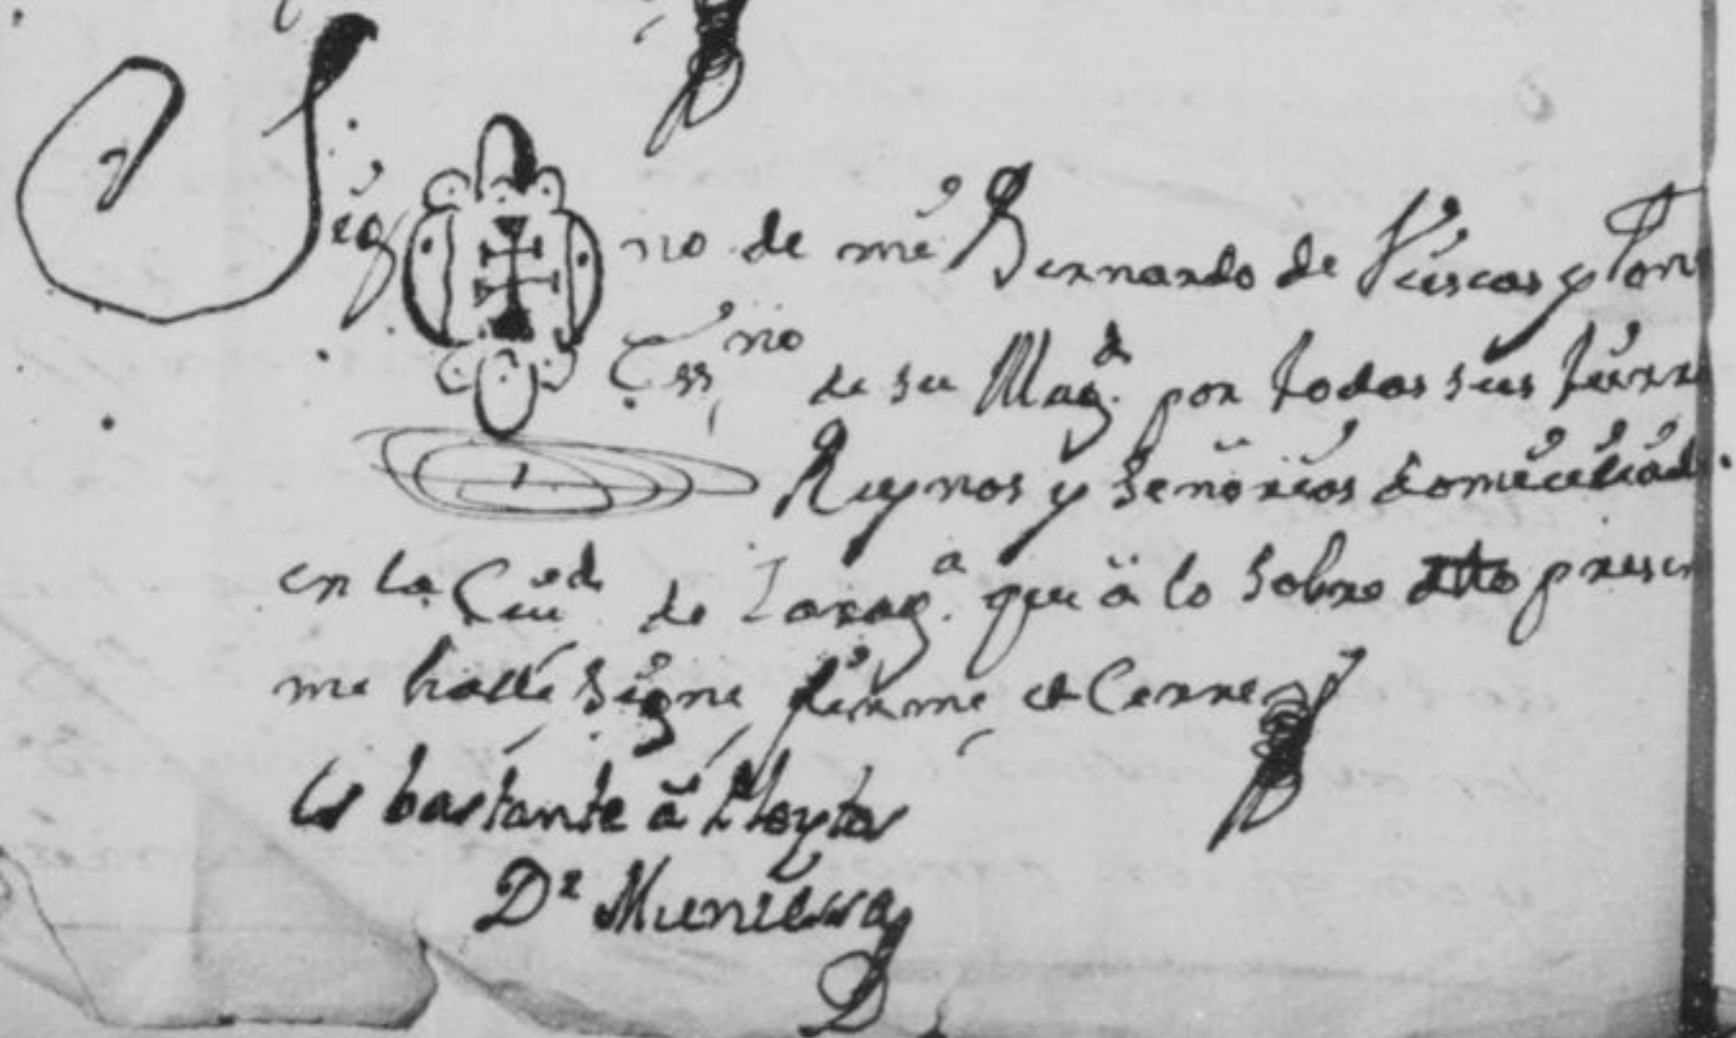 Sig no de mi Bernardo de
Essno de su Magd. por todas sus tierra
Reynos y Señorios domiciliad
en la Ciud de Zarag.a que â lo sobre dto presen
me hallé Signé firmé et Cerré
Es bastante â Pleytos
Dr Muniessa